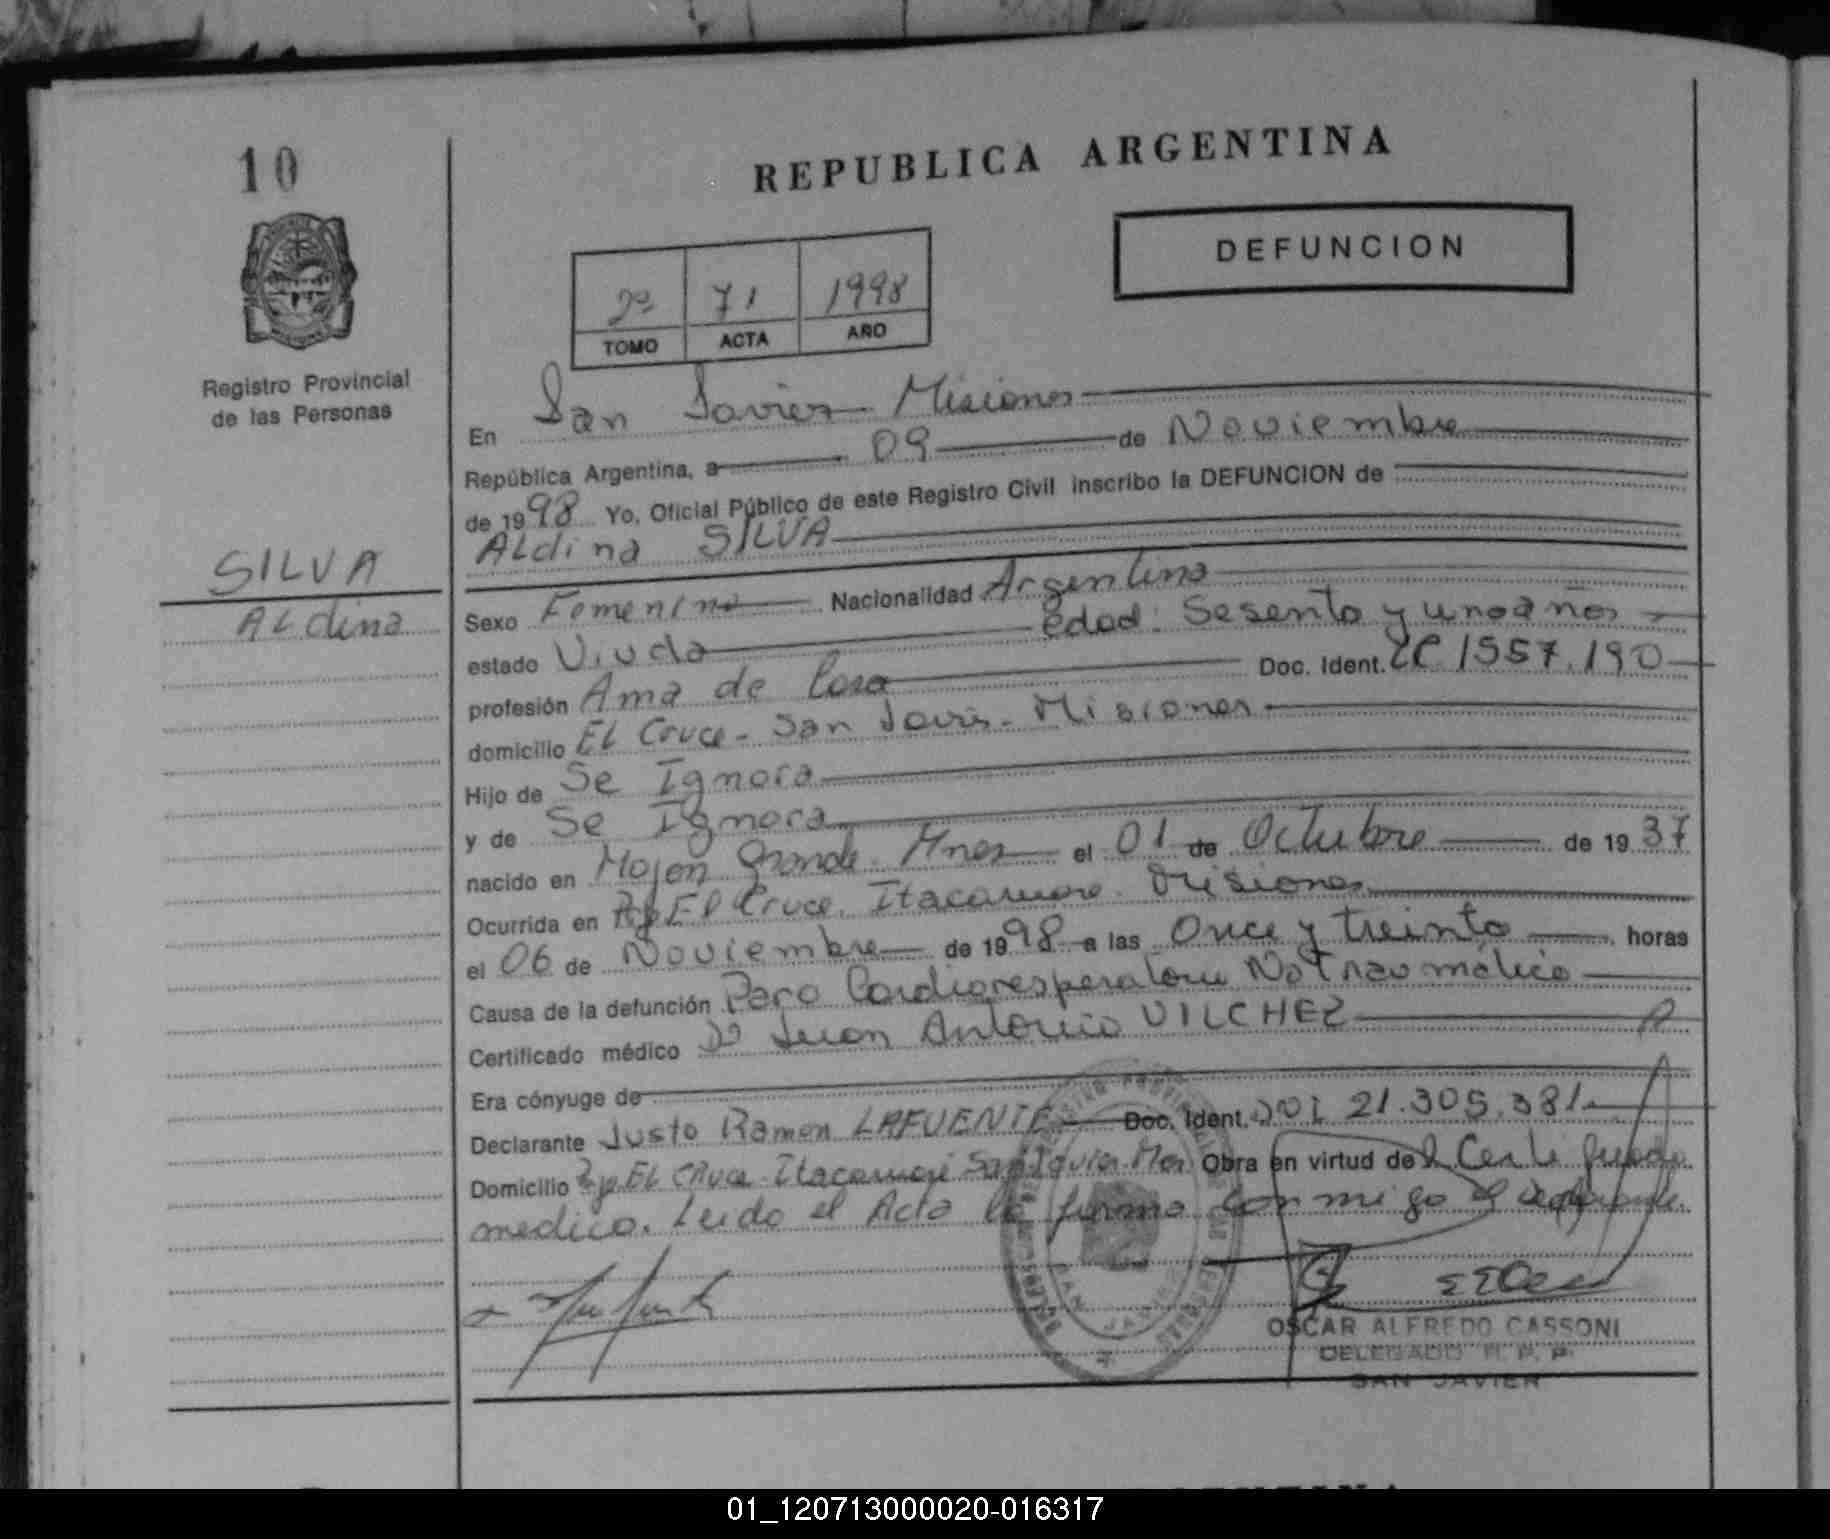 10
REPUBLICA ARGENTINA
DEFUNCION
2º 71 1998
TOMO ACTA AÑO
Registro Provincial
de las Personas
En San Javier Misiones
República Argentina, a 09 de Noviembre
de 1998 Yo, Oficial Público de este Registro Civil inscribo la DEFUNCION de
Aldina SILVA
SILVA
Aldina
Sexo Femenino Nacionalidad Argentina
estado Viuda edad: Sesenta y uno años
profesión Ama de Casa Doc. Ident. LC 1557.190
domicilio El Cruce - San Javier - Misiones
Hijo de Se Ignora
y de Se Ignora
nacido en Mojon Grande Mnes el 01 de Octubre de 1937
Ocurrida en El Cruce. Itacaruare. Misiones
el 06 de Noviembre de 1998 a las Once y treinta horas
Causa de la defunción Paro Cardiorespiratorio No Traumatico
Certificado médico Dr Juan Antonio VILCHEZ
Era cónyuge de
Declarante Justo Ramon LAFUENTE Doc. Ident. DNI 21.305.381
Domicilio El Cruce Itacaruaré San Javier Mnes Obra en virtud del Certificado
medico. Leido el Acta la firma conmigo el declarante.
SAN JAVIER
OSCAR ALFREDO CASSONI
DELEGADO R. P. P.
SAN JAVIER
01_120713000020-016317